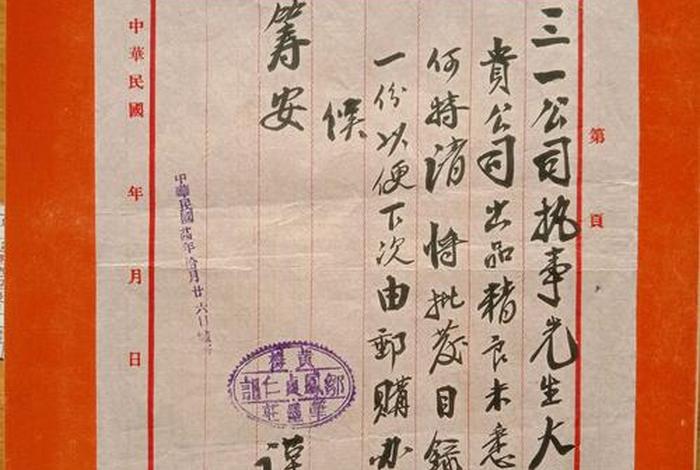 第 頁
三一公司執事先生大
貴公司出品精良未悉
何特請 將批發目錄
一份以便下次由郵購办
候
籌安 謹
中華民國 年拾月廿六日
中華民國 年 月 日